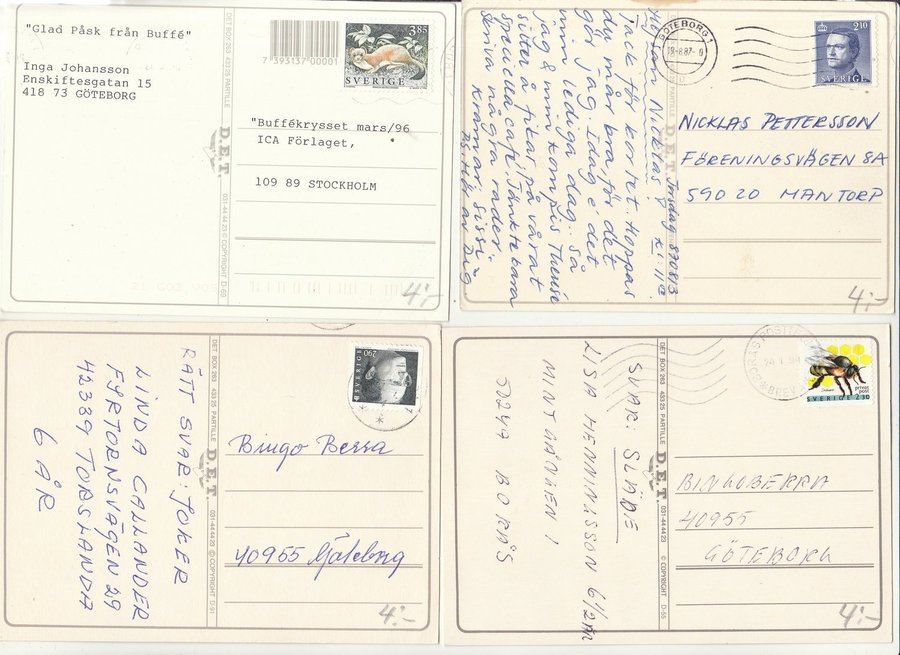 "Glad Påsk från Buffé"
Inga Johansson
Enskiftesgatan 15
418 73 GÖTEBORG
DET BOX 263 433 25 PARTILLE
D.E.T.
031-44 44 23 © COPYRIGHT D-69
7 393137 00001
3.85
SVERIGE
"Buffékrysset mars/96
ICA Förlaget,
109 89 STOCKHOLM
4:-
Torsdag 870813
kl 11
Tack för kortet. Hoppas
du mår bra, för det
gör jag. Idag é det
min lediga dag. Så
jag & min kompis Therése
sitter å fikar på vårat
speciella café. Tänkte bara
skriva några rader.
Kramar, Sissi
PS. Hör av Dig
PARTILLE
D.E.T.
GÖTEBORG 1
2.10
SVERIGE
NICKLAS PETTERSSON
FÖRENINGSVÄGEN 8A
590 20 MANTORP
4:-
RÄTT SVAR: JOKER
LINDA CALLANDER
FYRTORNSVÄGEN 29
42339 TORSLANDA
6 ÅR
DET BOX 263 433 25 PARTILLE
D.E.T.
031-44 44 23 © COPYRIGHT D-91
SVERIGE
290
Bingo Berra
40955 Göteborg
4:-
SVAR: SLÄDE
LISA HENNINGSSON 6 1/2 ÅR
MINTGÅNGEN 1
50244 BORÅS
DET BOX 263 433 25 PARTILLE
D.E.T.
031-44 44 23 © COPYRIGHT D-55
privat
post
SVERIGE 2.30
BINGOBERRA
40955
GÖTEBORG
4:-